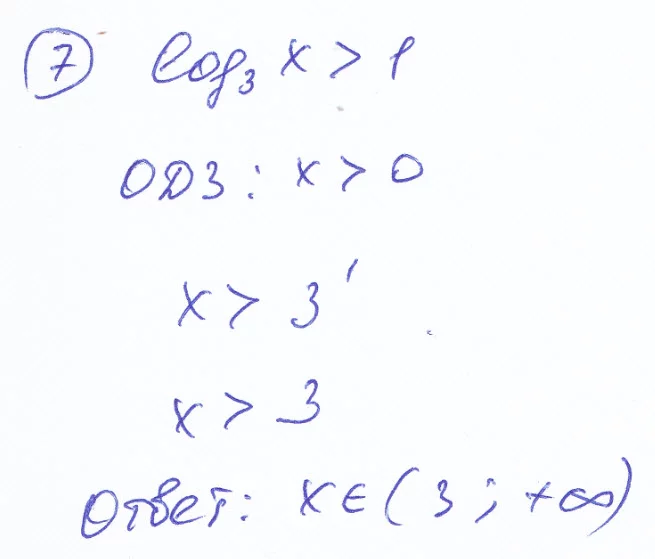 7 log₃ x > 1
ОДЗ: x > 0
x > 3¹
x > 3
Ответ: x ∈ (3; +∞)